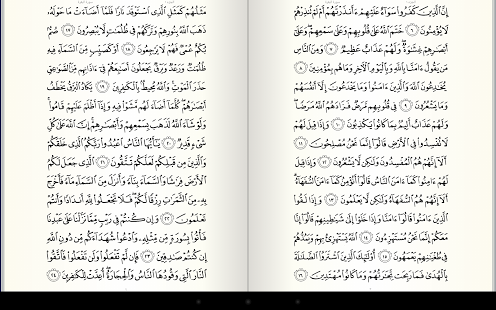 إِنَّ ٱلَّذِينَ كَفَرُوا۟ سَوَآءٌ عَلَيْهِمْ ءَأَنذَرْتَهُمْ أَمْ لَمْ تُنذِرْهُمْ
لَا يُؤْمِنُونَ ٦ خَتَمَ ٱللَّهُ عَلَىٰ قُلُوبِهِمْ وَعَلَىٰ سَمْعِهِمْ وَعَلَىٰٓ
أَبْصَٰرِهِمْ غِشَٰوَةٌ وَلَهُمْ عَذَابٌ عَظِيمٌ ٧ وَمِنَ ٱلنَّاسِ
مَن يَقُولُ ءَامَنَّا بِٱللَّهِ وَبِٱلْيَوْمِ ٱلْءَاخِرِ وَمَا هُم بِمُؤْمِنِينَ ٨
يُخَٰدِعُونَ ٱللَّهَ وَٱلَّذِينَ ءَامَنُوا۟ وَمَا يَخْدَعُونَ إِلَّآ أَنفُسَهُمْ
وَمَا يَشْعُرُونَ ٩ فِى قُلُوبِهِم مَّرَضٌ فَزَادَهُمُ ٱللَّهُ مَرَضًا
وَلَهُمْ عَذَابٌ أَلِيمٌۢ بِمَا كَانُوا۟ يَكْذِبُونَ ١٠ وَإِذَا قِيلَ لَهُمْ
لَا تُفْسِدُوا۟ فِى ٱلْأَرْضِ قَالُوٓا۟ إِنَّمَا نَحْنُ مُصْلِحُونَ ١١
أَلَآ إِنَّهُمْ هُمُ ٱلْمُفْسِدُونَ وَلَٰكِن لَّا يَشْعُرُونَ ١٢ وَإِذَا قِيلَ
لَهُمْ ءَامِنُوا۟ كَمَآ ءَامَنَ ٱلنَّاسُ قَالُوٓا۟ أَنُؤْمِنُ كَمَآ ءَامَنَ ٱلسُّفَهَآءُ
أَلَآ إِنَّهُمْ هُمُ ٱلسُّفَهَآءُ وَلَٰكِن لَّا يَعْلَمُونَ ١٣ وَإِذَا لَقُوا۟
ٱلَّذِينَ ءَامَنُوا۟ قَالُوٓا۟ ءَامَنَّا وَإِذَا خَلَوْا۟ إِلَىٰ شَيَٰطِينِهِمْ قَالُوٓا۟ إِنَّا
مَعَكُمْ إِنَّمَا نَحْنُ مُسْتَهْزِءُونَ ١٤ ٱللَّهُ يَسْتَهْزِئُ بِهِمْ وَيَمُدُّهُمْ
فِى طُغْيَٰنِهِمْ يَعْمَهُونَ ١٥ أُو۟لَٰٓئِكَ ٱلَّذِينَ ٱشْتَرَوُا۟ ٱلضَّلَٰلَةَ
بِٱلْهُدَىٰ فَمَا رَبِحَت تِّجَٰرَتُهُمْ وَمَا كَانُوا۟ مُهْتَدِينَ ١٦
مَثَلُهُمْ كَمَثَلِ ٱلَّذِى ٱسْتَوْقَدَ نَارًا فَلَمَّآ أَضَآءَتْ مَا حَوْلَهُۥ
ذَهَبَ ٱللَّهُ بِنُورِهِمْ وَتَرَكَهُمْ فِى ظُلُمَٰتٍ لَّا يُبْصِرُونَ ١٧ صُمٌّۢ
بُكْمٌ عُمْىٌ فَهُمْ لَا يَرْجِعُونَ ١٨ أَوْ كَصَيِّبٍ مِّنَ ٱلسَّمَآءِ فِيهِ
ظُلُمَٰتٌ وَرَعْدٌ وَبَرْقٌ يَجْعَلُونَ أَصَٰبِعَهُمْ فِىٓ ءَاذَانِهِم مِّنَ ٱلصَّوَٰعِقِ
حَذَرَ ٱلْمَوْتِ وَٱللَّهُ مُحِيطٌۢ بِٱلْكَٰفِرِينَ ١٩ يَكَادُ ٱلْبَرْقُ يَخْطَفُ
أَبْصَٰرَهُمْ كُلَّمَآ أَضَآءَ لَهُم مَّشَوْا۟ فِيهِ وَإِذَآ أَظْلَمَ عَلَيْهِمْ قَامُوا۟
وَلَوْ شَآءَ ٱللَّهُ لَذَهَبَ بِسَمْعِهِمْ وَأَبْصَٰرِهِمْ إِنَّ ٱللَّهَ عَلَىٰ كُلِّ
شَىْءٍ قَدِيرٌ ٢٠ يَٰٓأَيُّهَا ٱلنَّاسُ ٱعْبُدُوا۟ رَبَّكُمُ ٱلَّذِى خَلَقَكُمْ
وَٱلَّذِينَ مِن قَبْلِكُمْ لَعَلَّكُمْ تَتَّقُونَ ٢١ ٱلَّذِى جَعَلَ لَكُمُ
ٱلْأَرْضَ فِرَٰشًا وَٱلسَّمَآءَ بِنَآءً وَأَنزَلَ مِنَ ٱلسَّمَآءِ مَآءً فَأَخْرَجَ
بِهِۦ مِنَ ٱلثَّمَرَٰتِ رِزْقًا لَّكُمْ فَلَا تَجْعَلُوا۟ لِلَّهِ أَندَادًا وَأَنتُمْ
تَعْلَمُونَ ٢٢ وَإِن كُنتُمْ فِى رَيْبٍ مِّمَّا نَزَّلْنَا عَلَىٰ عَبْدِنَا
فَأْتُوا۟ بِسُورَةٍ مِّن مِّثْلِهِۦ وَٱدْعُوا۟ شُهَدَآءَكُم مِّن دُونِ ٱللَّهِ
إِن كُنتُمْ صَٰدِقِينَ ٢٣ فَإِن لَّمْ تَفْعَلُوا۟ وَلَن تَفْعَلُوا۟ فَٱتَّقُوا۟
ٱلنَّارَ ٱلَّتِى وَقُودُهَا ٱلنَّاسُ وَٱلْحِجَارَةُ أُعِدَّتْ لِلْكَٰفِرِينَ ٢٤